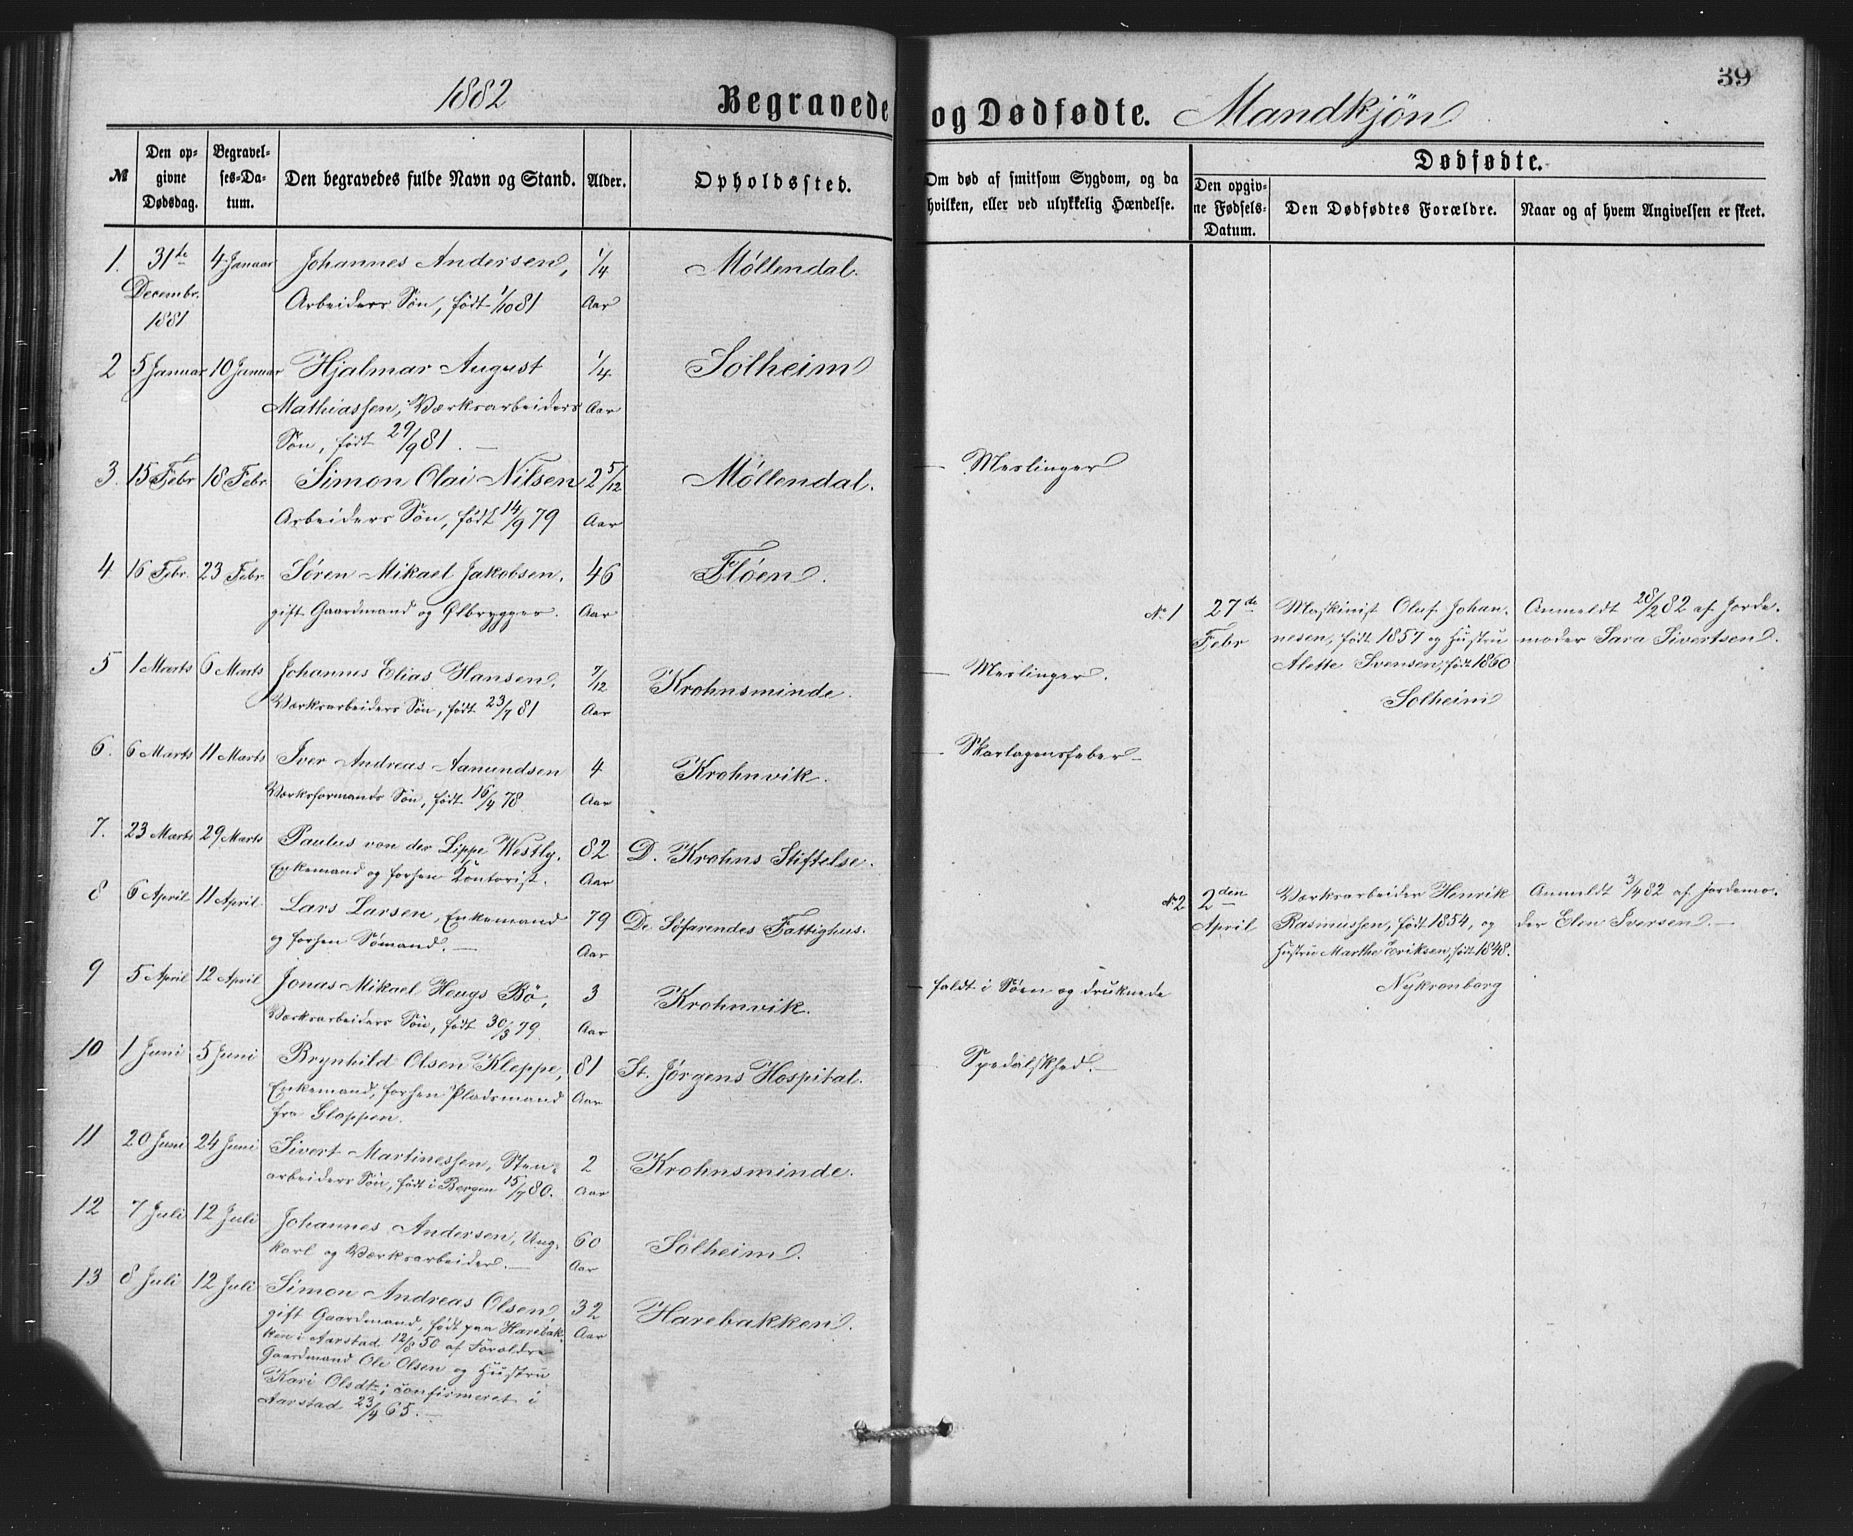 1882 Begravede og Dødfødte. Mandkjøn
39
№
Den opgivne Dødsdag.
Begravelses-Datum.
Den begravedes fulde Navn og Stand.
Alder.
Opholdssted.
Om død af smitsom Sygdom, og da
hvilken, eller ved ulykkelig Hændelse.
Dødfødte.
Den opgivne Fødsels-Datum.
Den Dødfødtes Forældre.
Naar og af hvem Angivelsen er skeet.
1. 31te 4 Januar Johannes Andersen, 1/4 Møllendal.
Decembr. Arbeiders Søn, født 1/10 81 Aar
1881
2 5 Januar 10 Januar Hjalmar August 1/4 Solheim
Mathiassen, Værksarbeiders Aar
Søn, født 29/9 81. —
3. 15 Febr 18 Febr Simon Olai Nilsen 2 5/12 Møllendal. — Meslinger
Arbeiders Søn, født 14/9 79 Aar
4 16 Febr. 23 Febr. Søren Mikael Jakobsen, 46 Fløen.
gift Gaardmand og Ølbrygger. Aar
№ 1 27de Maskinist Oluf Johan- Anmeldt 28/2 82 af Jorde-
Febr nesen, født 1857 og Hustru moder Sara Sivertsen.
Alette Svensen, født 1860
Solheim
5 1 Marts 6 Marts Johannes Elias Hansen, 7/12 Krohnsminde. — Meslinger.
Værksarbeiders Søn, født 23/7 81 Aar
6. 6 Marts 11 Marts Iver Andreas Aamundsen 4 Krohnvik. — Skarlagensfeber —
Værksformands Søn, født 16/4 78 Aar
7. 23 Marts 29 Marts Paulus von der Lippe Westly, 82 D. Krohns Stiftelse.
Enkemand og forhen Kontorist. Aar
8 6 April 11 April Lars Larsen, Enkemand 79 De Søfarendes Fattighus.
og forhen Sømand. — Aar
№ 2 2den Værksarbeider Henrik Anmeldt 3/4 82 af Jordemo-
April Rasmussen, født 1854, og der Elen Iversen. —
Hustru Marthe Eriksen, født 1848.
Nykronborg
9 5 April 12 April Jonas Mikael Heugs Bö, 3 Krohnvik. faldt i Søen og druknede
Værksarbeiders Søn, født 30/3 79. Aar
10 1 Juni 5 Juni Brynhild Olsen Kleppe, 81 St. Jørgens Hospital. — Spedalskhed. —
Enkemand, forhen Pladsmand Aar
fra Gloppen.
11 20 Juni 24 Juni Sivert Martinessen, Sten- 2 Krohnsminde.
arbeiders Søn, født i Bergen 15/7 80. Aar
12 7 Juli 12 Juli Johannes Andersen, Ung- 60 Solheim.
karl og Værksarbeider. — Aar
13 8 Juli 12 Juli Simon Andreas Olsen, 32 Harebakken.
gift Gaardmand, født paa Harebak- Aar
ken i Aarstad 12/8 50 af Forældre
Gaardmand Ole Olsen og Hustru
Kari Olsdt.; confirmeret i
Aarstad 23/4 65. —